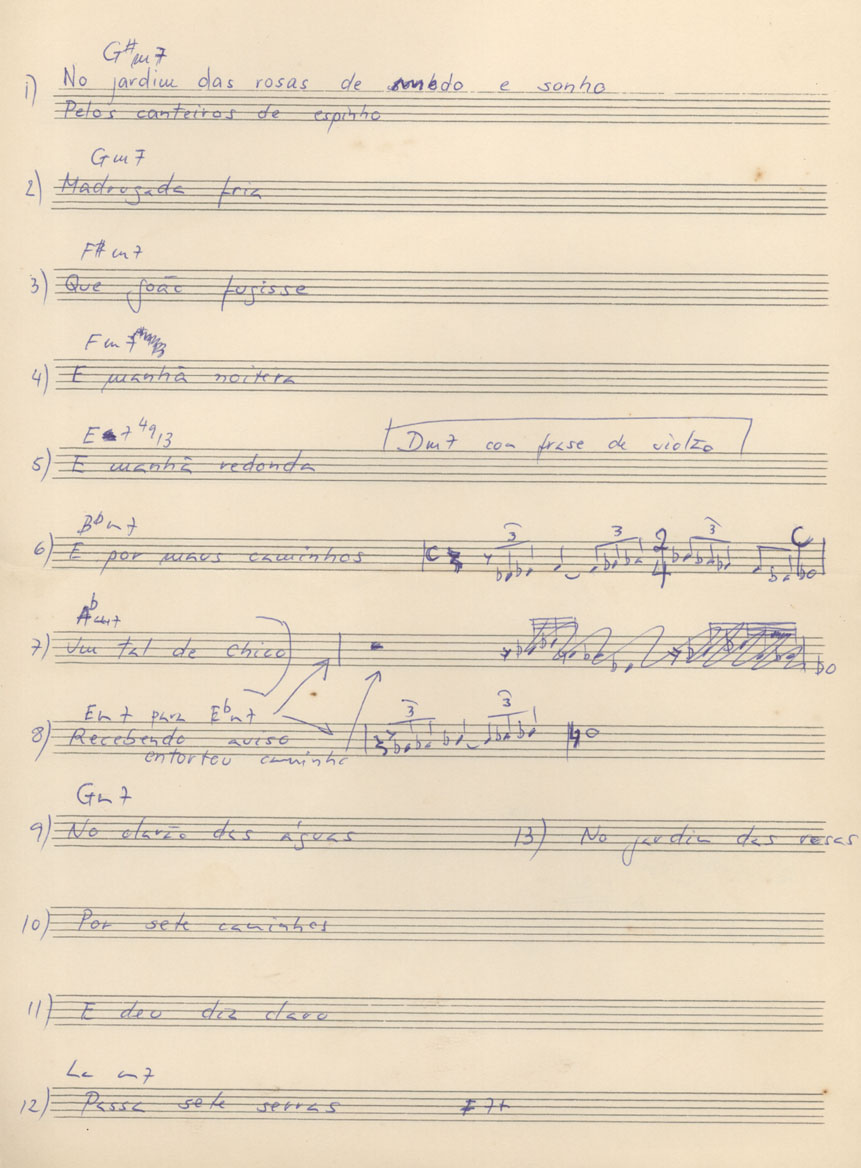 G#m7
1) No jardim das rosas de medo e sonho
Pelos canteiros de espinho
Gm7
2) Madrugada fria
F#m7
3) Que João fugisse
Fm7
4) E manhã noiteira
E 7 4 9/13
Dm7 com frase de violão
5) E manhã redonda
Bbm7
6) E por maus caminhos
C 3 3 2/4 3 C
Abm7
7) Um tal de Chico
Em7 para Ebm7
3 3
8) Recebendo aviso
entortou caminho
Gm7
9) No clarão das águas
13) No jardim das rosas
10) Por sete caminhos
11) E deu dia claro
La m7
12) Passa sete serras
7+